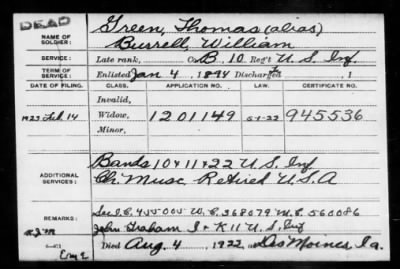 DEAD
NAME OF SOLDIER:
Green, Thomas (alias)
Burrell, William
SERVICE:
Late rank, Co B, 10 Reg't U.S. Inf
TERM OF SERVICE:
Enlisted Jan 4, 1894 Discharged , 1
DATE OF FILING. CLASS. APPLICATION NO. LAW. CERTIFICATE NO.
Invalid,
1923 Feb 14 Widow, 1201149 945536
Minor,
ADDITIONAL SERVICES:
Bands 10 & 11 & 22 U.S. Inf
Ch. Musc Retired U.S.A
REMARKS:
560086
John Graham I & K 11 U.S. Inf
Died Aug. 4, 1922, Des Moines, Ia.